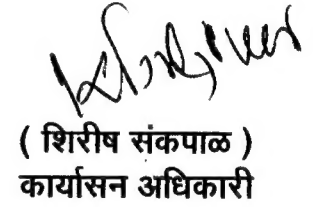 ( शिरीष संकपाळ )
कार्यासन अधिकारी